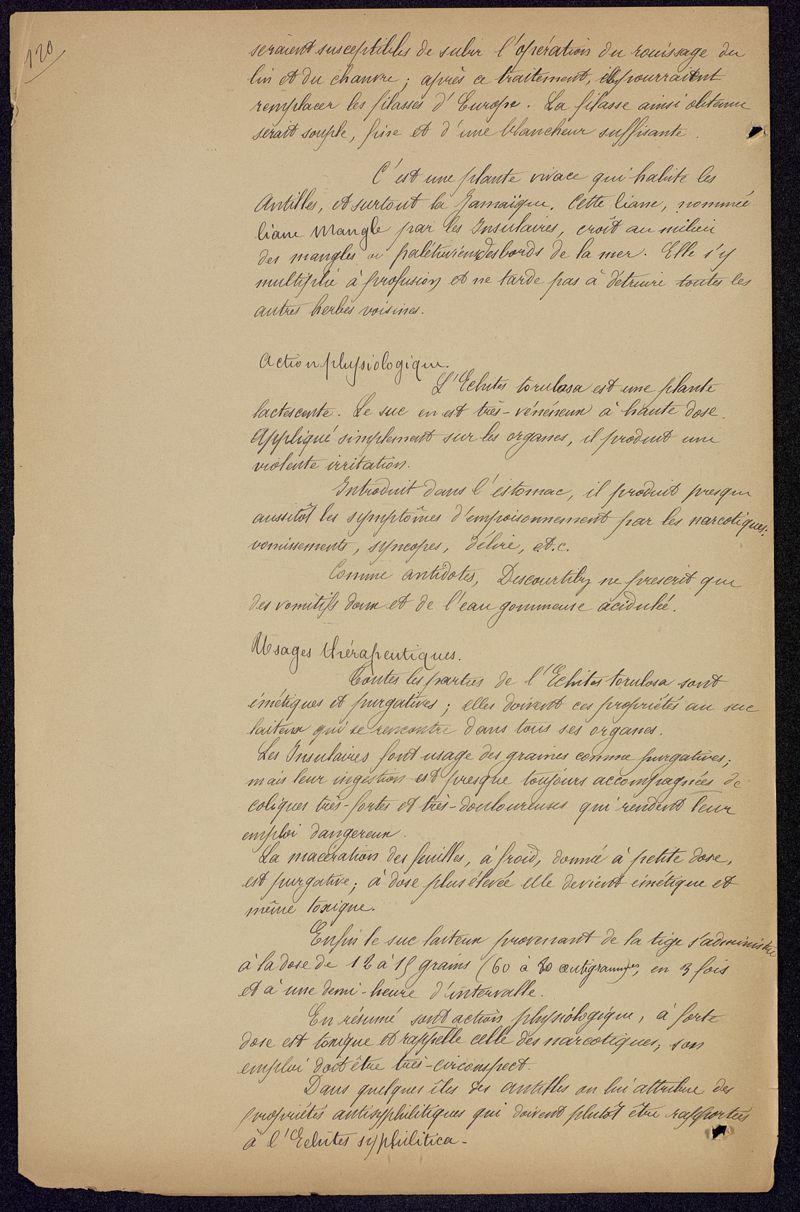 120
seraient susceptibles de subir l'opération du rouissage du
lin et du chanvre ; après ce traitement, ils pourraient
remplacer les filasses d'Europe. La filasse ainsi obtenue
serait souple, fine et d'une blancheur suffisante.
C'est une plante vivace qui habite les
Antilles, et surtout la Jamaïque. Cette liane, nommée
liane Mangle par les Insulaires, croît au milieu
des mangles ou palétuviers des bords de la mer. Elle s'y
multiplie à profusion et ne tarde pas à détruire toutes les
autres herbes voisines.
Action physiologique.
L'Echites torulosa est une plante
lactescente. Le suc en est très-vénéneux à haute dose.
Appliqué simplement sur les organes, il produit une
violente irritation.
Introduit dans l'estomac, il produit presque
aussitôt les symptômes d'empoisonnement par les narcotiques:
vomissements, syncopes, délire, etc.
Comme antidotes, Descourtilz ne prescrit que
des vomitifs doux et de l'eau gommeuse acidulée.
Usages thérapeutiques.
Toutes les parties de l'Echites torulosa sont
émétiques et purgatives ; elles doivent ces propriétés au suc
laiteux qui se rencontre dans tous ses organes.
Les Insulaires font usage des graines comme purgatives ;
mais leur ingestion est presque toujours accompagnées de
coliques très-fortes et très-douloureuses qui rendent leur
emploi dangereux.
La macération des feuilles, à froid, donnée à petite dose,
est purgative ; à dose plus élevée elle devient émétique et
même toxique.
Enfin le suc laiteux provenant de la tige s'administre
à la dose de 12 à 15 grains (60 à 80 centigrammes), en 3 fois
et à une demi-heure d'intervalle.
En résumé sont action physiologique, à forte
dose est toxique et rappelle celle des narcotiques ; son
emploi doit être très-circonspect.
Dans quelques îles des Antilles on lui attribue des
propriétés antisyphilitiques qui doivent plutôt être rapportées
à l'Echites syphilitica -